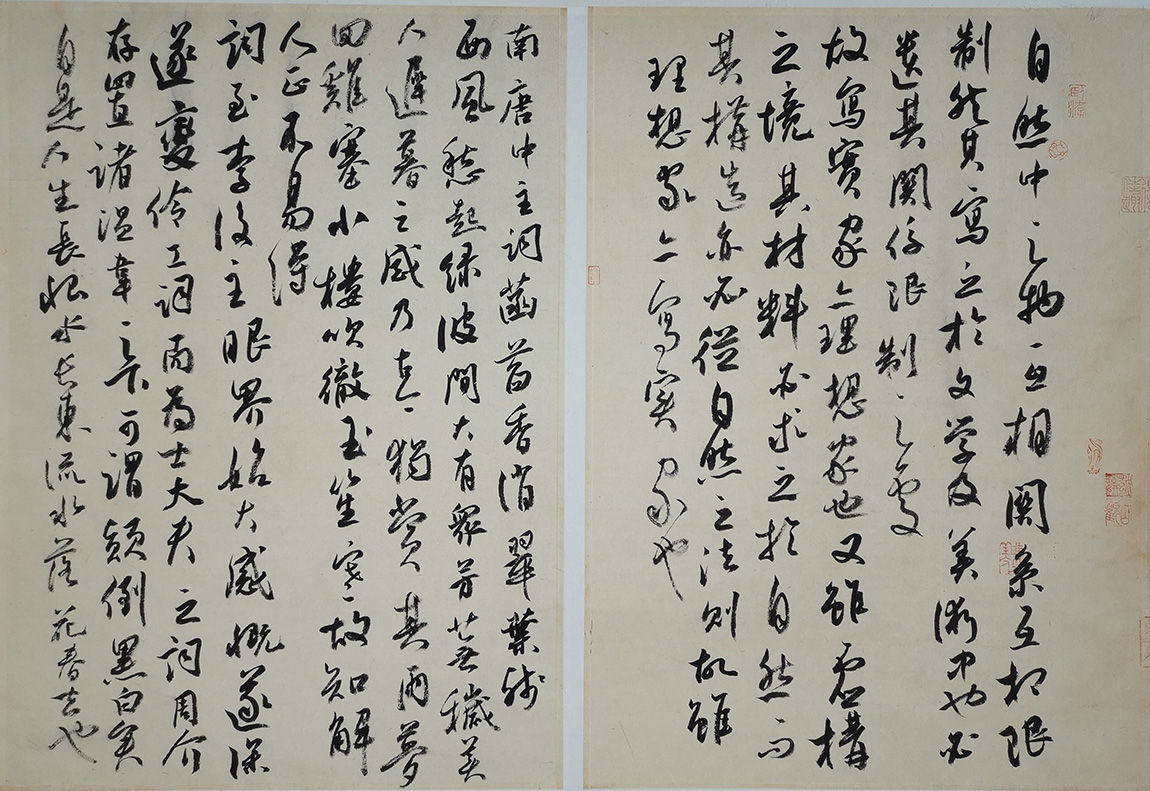 自然中之物互相關系互相限
制然其寫之於文學及美術中也必
遺其關係限制之處
故寫實家亦理想家也又雖虛構
之境其材料必求之於自然而
其構造亦必從自然之法則故雖
理想家亦寫實家也
南唐中主詞菡萏香消翠葉殘
西風愁起綠波間大有衆芳蕪穢美
人遲暮之感乃古今獨賞其雨夢
回雞塞小樓吹徹玉笙寒故知解
人正不易得
詞至李後主眼界始大感慨遂深
遂變伶工詞而為士大夫之詞周介
存置諸溫韋之下可謂顛倒黑白矣
自是人生長恨水長東流水落花春去也